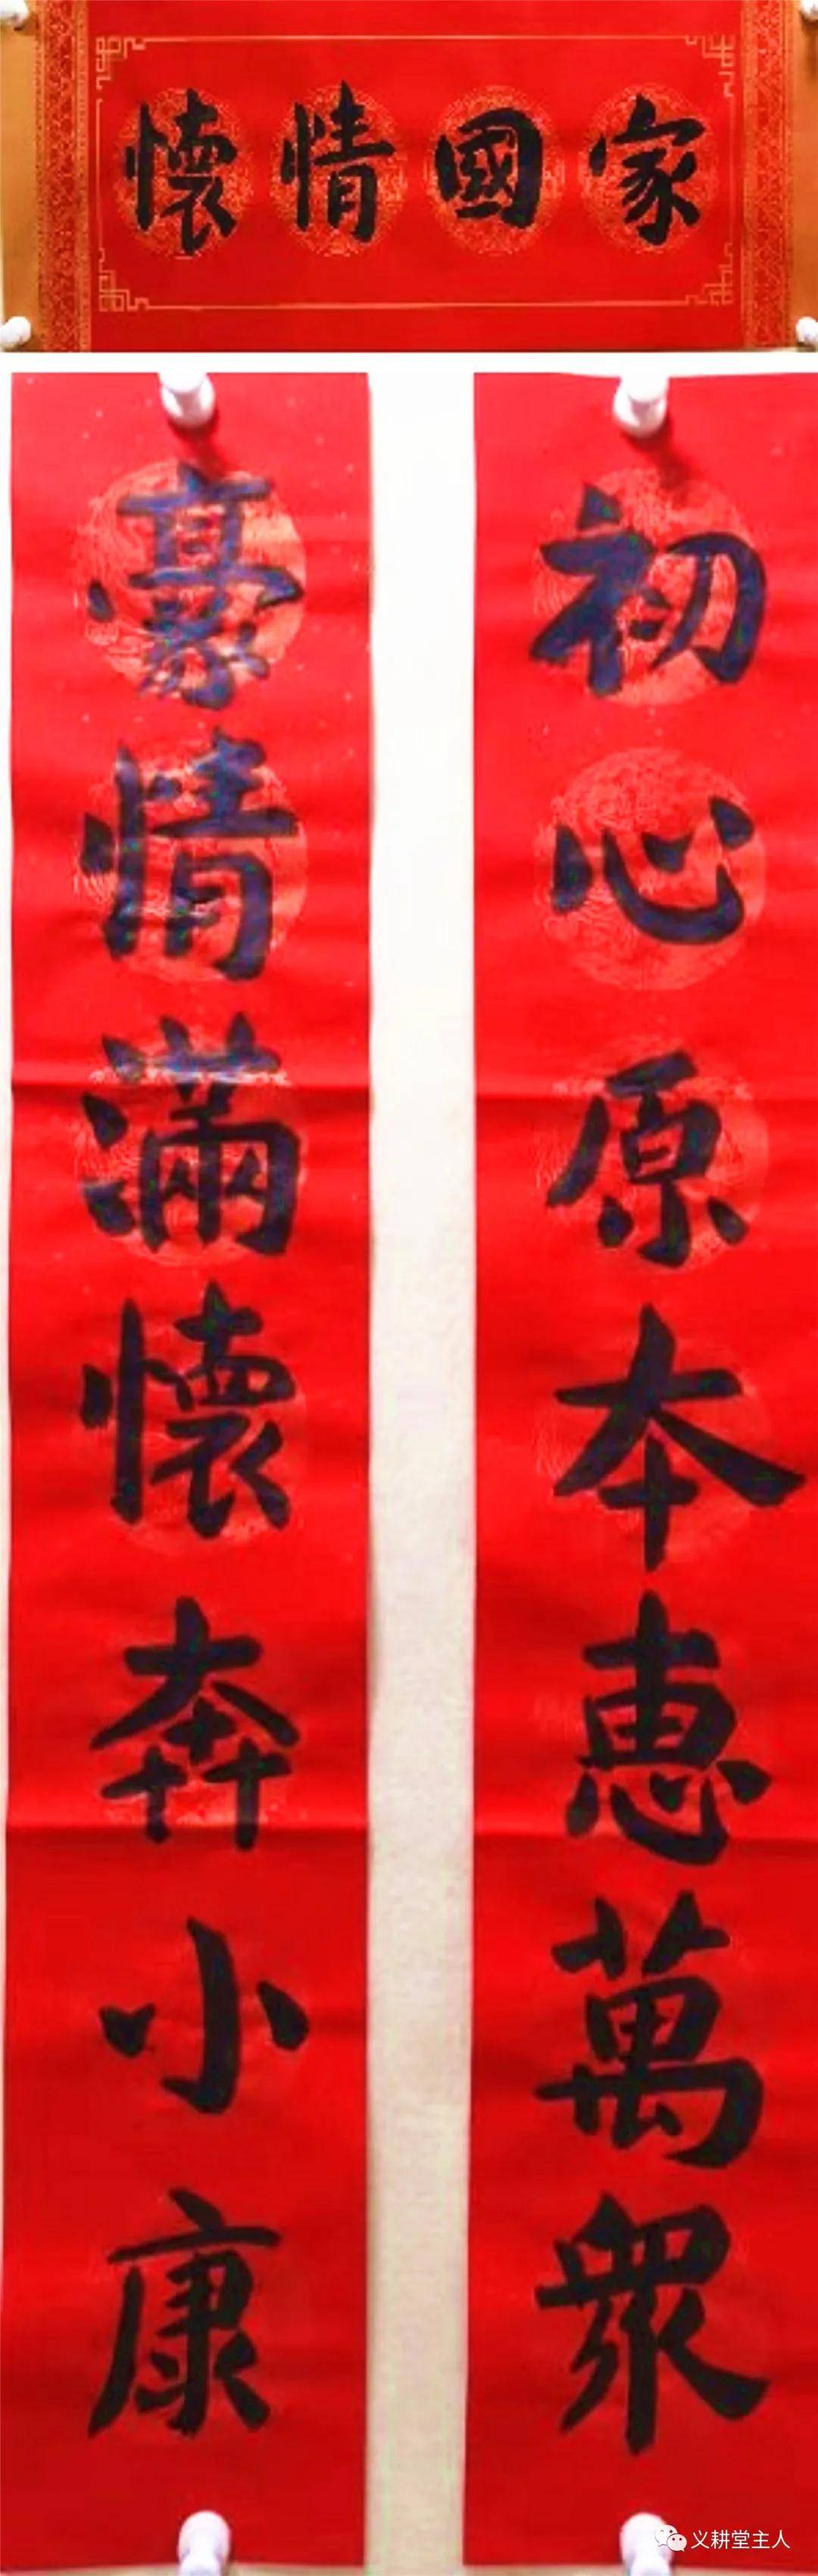 家國情懷
初心原本惠萬衆
豪情滿懷奔小康
义耕堂主人